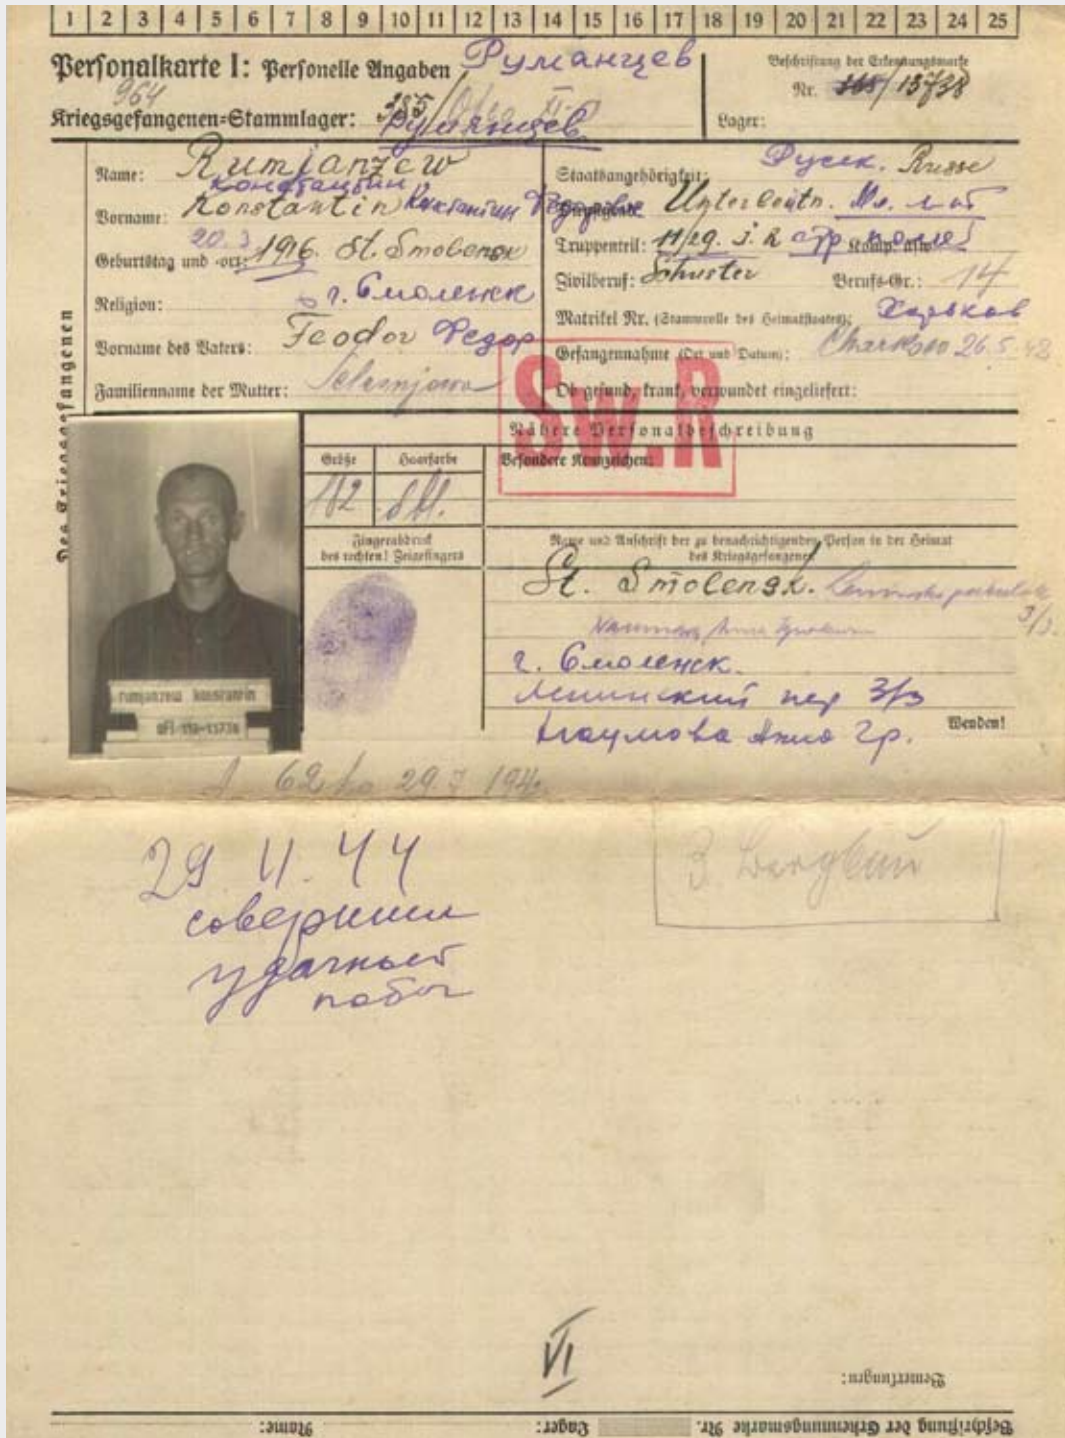 1 2 3 4 5 6 7 8 9 10 11 12 13 14 15 16 17 18 19 20 21 22 23 24 25
Personalkarte I: Personelle Angaben
Руманцев
Beschriftung der Erkennungsmarke
Nr. 13738
964
Kriegsgefangenen=Stammlager:
Румянцев
Lager:
Des Kriegsgefangenen
Name: Rumjanzew
Константин
Vorname: Konstantin Константин Федорович
20.3
Geburtstag und =ort: 1916. St. Smolensk
Religion: г. Смоленск
Vorname des Vaters: Feodor Федор
Familienname der Mutter:
Staatsangehörigkeit: Русск. Russe
Dienstgrad: Unterleutn. Мл. л-т
Truppenteil: 11/29. J. R стр. полк Komp. usw.
Zivilberuf: Schuster Berufs=Gr.: 14
Matrikel Nr. (Stammrolle des Heimatstaates): Харьков
Gefangennahme (Ort und Datum): Charkow 26.5.42
Ob gesund, krank, verwundet eingeliefert:
Sw.R
Nähere Personalbeschreibung
Größe Haarfarbe Besondere Kennzeichen:
182
Fingerabdruck
des rechten! Zeigefingers
Name und Anschrift der zu benachrichtigenden Person in der Heimat
des Kriegsgefangenen
St. Smolensk.
3/3.
г. Смоленск.
Ленинский пер 3/3
Наумова Анна Гр.
Wenden!
rumjanzew konstantin
29. 7. 194
29 11. 44
совершил
удачный
побег
3. Bergbau
VI
Bemerkungen:
Beschriftung der Erkennungsmarke Nr. Lager: Name: